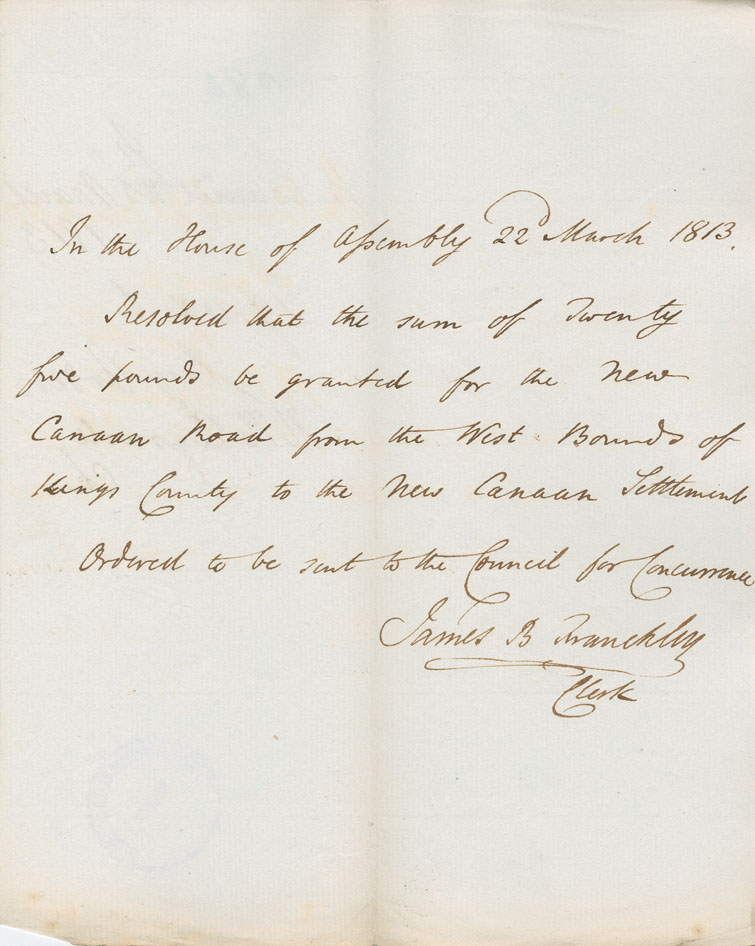 In the House of Assembly 22d March 1813.
Resolved that the sum of Twenty
five pounds be granted for the New
Canaan Road from the West Bounds of
Kings County to the New Canaan Settlement
Ordered to be sent to the Council for Concurrence
James B Franckley
Clerk